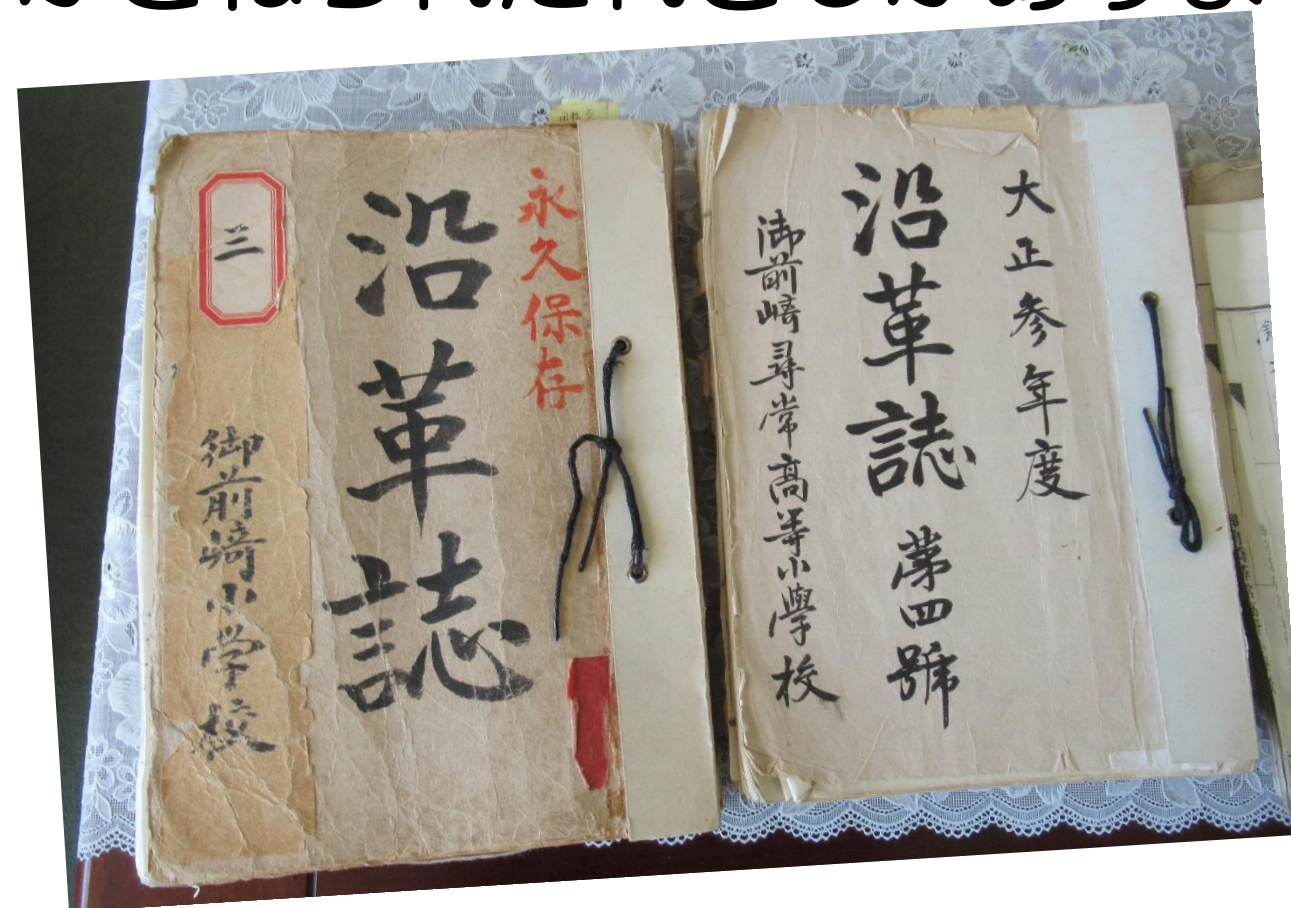 永久保存
沿革誌
三
御前崎小学校
大正参年度
沿革誌 第四號
御前崎尋常高等小學校